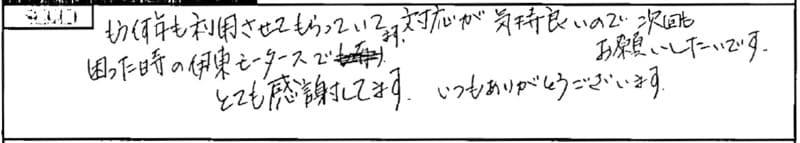 もう何年も利用させてもらっていてます。対応が気持良いので次回も
お願いしたいです。
困った時の伊東モータースで
とても感謝してます。いつもありがとうございます。